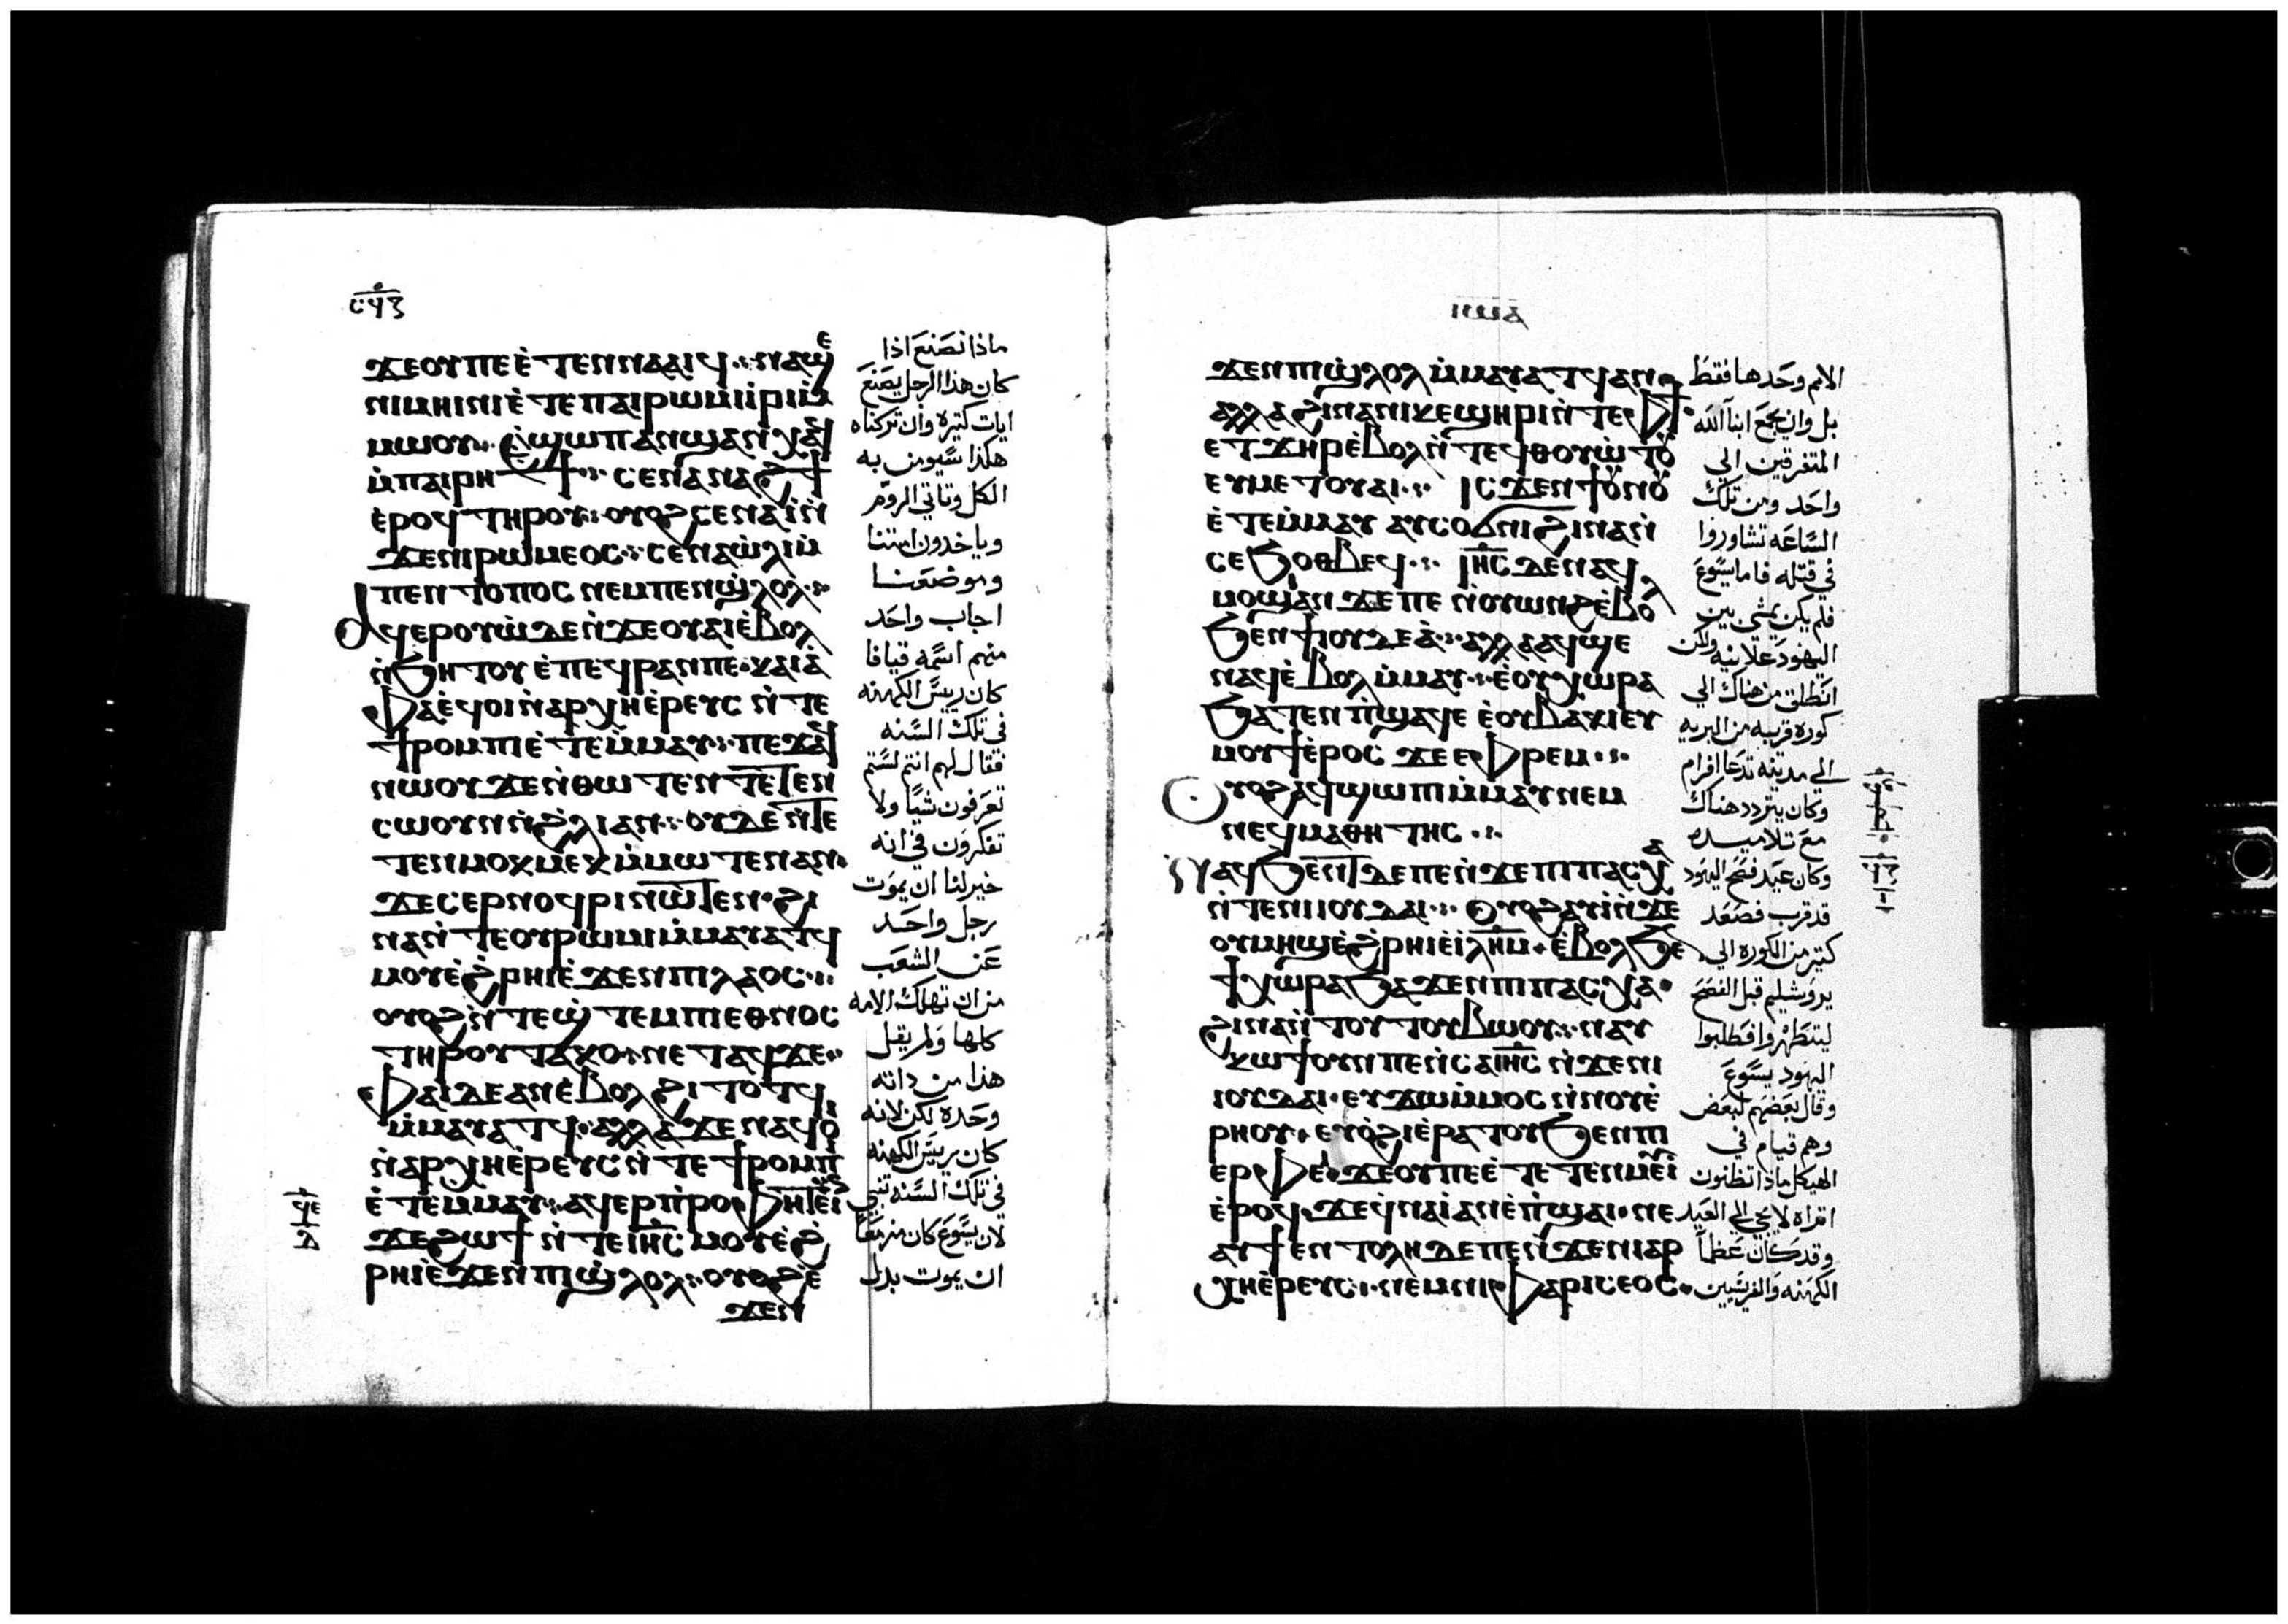 ⲥϥⲋ
ϫⲉⲟⲩⲡⲉⲉ̇ⲧⲉⲛⲛⲁⲁⲓϥ⁘ⲛⲁϣⲉ
ⲛⲓⲙⲏⲓⲛⲓⲉ̇ⲧⲉⲡⲁⲓⲣⲱⲙⲓⲓ̇ⲣⲓⲙ̇
ⲙⲱⲟⲩ⁘ⲉ̇ϣⲱⲡⲁⲛϣⲁⲛⲭⲁϥ
ⲙ̇ⲡⲁⲓⲣⲏϯ⁘ⲥⲉⲛⲁⲛⲁϩϯ
ⲉ̇ⲣⲟϥⲧⲏⲣⲟⲩ⁘ⲟⲩⲟϩⲥⲉⲛⲁⲓ̇ⲛ̇
ϫⲉⲛⲓⲣⲱⲙⲉⲟⲥ⁘ⲥⲉⲛⲁⲱ̇ⲗⲓⲙ̇
ⲡⲉⲛⲧⲟⲡⲟⲥⲛⲉⲙⲡⲉⲛϣ̇ⲗⲟⲗ⁘
ⲁϥⲉⲣⲟⲩⲱ̇ⲇⲉⲛ̇ϫⲉⲟⲩⲁⲓⲉ̇ⲃⲟⲗ
ⲛ̇ϧⲏⲧⲟⲩⲉ̇ⲡⲉϥⲣⲁⲛⲡⲉ·ⲕⲁⲓⲁ̇
ⲫⲁⲉ̇ϥⲟⲓⲛ̇ⲁⲣⲭⲏⲉ̇ⲣⲉⲩⲥⲛ̇ⲧⲉ
ϯⲣⲟⲙⲡⲓⲉ̇ⲧⲉⲙ̇ⲙⲁⲩ⁘ⲡⲉϫⲁϥ
ⲛⲱⲟⲩϫⲉⲛ̇ⲑⲱⲧⲉⲛⲧⲉ̇ⲧⲉⲛ
ⲥⲱⲟⲩⲛⲛ̇ϩⲗⲓⲁⲛ⁘ⲟⲩⲇⲉⲛ̇ⲧⲉ
ⲧⲉⲛⲙⲟⲕⲙⲉⲕⲙ̇ⲙⲱⲧⲉⲛⲁⲛ·
ϫⲉⲥⲉⲣⲛⲟϥⲣⲓⲛⲱ̇ⲧⲉⲛ·ϩⲓ
ⲛⲁⲛ̇ⲧⲉⲟⲩⲣⲱⲙⲓⲙ̇ⲙⲁⲩⲁⲧϥ
ⲙⲟⲩⲉ̇ϩⲣⲏⲓⲉ̇ϫⲉⲛⲡⲓⲗⲁⲟⲥ⁘
ⲟⲩⲟϩⲛ̇ⲧⲉϣ̇ⲧⲉⲙⲡⲓⲉⲑⲛⲟⲥ
ⲧⲏⲣⲟⲩⲧⲁⲕⲟ⁘ⲛⲉⲧⲁϥϫⲉ·
ⲫⲁⲓⲇⲉⲁⲛⲉ̇ⲃⲟⲗϩⲓⲧⲟⲧϥ
ⲙ̇ⲙⲁⲩⲁⲧϥ·ⲁⲗⲗⲁϫⲉⲛⲁϥⲟⲓ
ⲛ̇ⲁⲣⲭⲏⲉ̇ⲣⲉⲩⲥⲛ̇ⲧⲉϯⲣⲟⲙⲡⲓ
ⲉ̇ⲧⲉⲙ̇ⲙⲁⲩ⁘ⲁϥⲉⲣⲡ̇ⲣⲟⲫⲏⲧⲉⲓⲛ
ϫⲉϩⲱϯⲛ̇ⲧⲉⲓⲏⲥⲙⲟⲩⲉ̇ϩ̇
ⲣⲏⲓⲉ̇ϫⲉⲛⲡⲓϣ̇ⲗⲟⲗ⁘ⲟⲩⲟϩⲉ̇
ϫⲉⲛ
ماذا نصنع اذا
كان هذا الرجل يصنع
ايات كثيرة وان تركناه
هكذا سيومن به
الكل وتاتي الروم
وياخدون امتنا
وموضعنا
اجاب واحد
منهم اسمه قيافا
كان رييس الكهنه
في تلك السنه
فقال لهم انتم لستم
تعرفون شيا ولا
تفكرون في انه
خير لنا ان يموت
رجل واحد
عن الشعب
من ان تهلك الامه
كلها ولم يقل
هذا من داته
وحده لكن لانه
كان رييس الكهنه
في تلك السنه تنبى
لان يسوع كان مزمعا
ان يموت بدل
ⲓⲱⲁ
ϫⲉⲛⲡⲓϣ̇ⲗⲟⲗⲙ̇ⲙⲁⲩⲁⲧϥⲁⲛ·
ⲁⲗⲗⲁϩⲓⲛⲁⲛⲓⲕⲉϣⲏⲣⲓⲛ̇ⲧⲉⲫϯ·
ⲉⲧϫⲏⲣⲉ̇ⲃⲟⲗⲛ̇ⲧⲉϥⲑⲟⲩⲱ̇ⲧⲟⲩ
ⲉⲩⲙⲉⲧⲟⲩⲁⲓ⁘ⲓⲥϫⲉⲛϯⲟⲩⲛⲟⲩ
ⲉ̇ⲧⲉⲙ̇ⲙⲁⲩⲁⲩⲥⲟϭⲛⲓϩⲓⲛⲁⲛ̇
ⲥⲉϧⲟⲑⲃⲉϥ⁘ⲓⲏⲥⲇⲉⲛⲁϥ
ⲙⲟϣⲓⲁⲛϫⲉⲡⲉⲛ̇ⲟⲩⲱⲛϩⲉ̇ⲃⲟⲗ
ϧⲉⲛϯⲓⲟⲩⲇⲉⲁ̇⁘ⲁⲗⲗⲁⲁϥϣⲉ
ⲛⲁϥⲉ̇ⲃⲟⲗⲙ̇ⲙⲁⲩ⁘ⲉ̇ⲟⲩⲭⲱⲣⲁ
ϧⲁⲧⲉⲛⲡ̇ϣⲁϥⲉⲉ̇ⲟⲩⲃⲁⲕⲓⲉⲩ
ⲙⲟⲩϯⲉ̇ⲣⲟⲥϫⲉⲉⲫⲣⲉⲙ⁘
ⲟⲩⲟϩⲁϥϣⲱⲡⲓⲙ̇ⲙⲁⲩⲛⲉⲙ
ⲛⲉϥⲙⲁⲑⲏⲧⲏⲥ⁘
ⲛⲁϥϧⲉⲛⲧⲇⲉⲡⲉⲛ̇ϫⲉⲡⲓⲡⲁⲥⲭⲁ
ⲛ̇ⲧⲉⲛⲓⲓⲟⲩⲇⲁⲓ⁘ⲟⲩⲟϩⲁⲩⲓ̇ⲛ̇ϫⲉ
ⲟⲩⲙⲏϣⲉ̇ϩ̇ⲣⲏⲓⲉ̇ⲓ̇ⲗⲏⲙ·ⲉ̇ⲃⲟⲗϧⲉⲛ
ϯⲭⲱⲣⲁϧⲁϫⲉⲛⲡⲓⲡⲁⲥⲭⲁ·
ϩⲓⲛⲁⲛ̇ⲧⲟⲩⲧⲟⲩⲃⲱⲟⲩ⁘ⲛⲁⲩ
ⲕⲱϯⲟⲩⲛⲡⲉⲛ̇ⲥⲁⲓⲏⲥⲛ̇ϫⲉⲛⲓ
ⲓⲟⲩⲇⲁⲓ·ⲉⲩϫⲱⲙ̇ⲙⲟⲥⲛ̇ⲛⲟⲩⲉ̇
ⲣⲏⲟⲩ·ⲉⲩⲟ̇ϩⲓⲉ̇ⲣⲁⲧⲟⲩϧⲉⲛⲡⲓ
ⲉⲣⲫⲉⲓ·ϫⲉⲟⲩⲡⲉⲉ̇ⲧⲉⲧⲉⲛⲙⲉⲩⲓ̇
ⲉ̇ⲣⲟϥ·ϫⲉϥ̇ⲛⲁⲓ̇ⲁⲛⲉ̇ⲡ̇ϣⲁⲓ·ⲛⲉ
ⲁⲩϯⲉⲛⲧⲟⲗⲏⲇⲉⲡⲉⲛ̇ϫⲉⲛⲓⲁⲣ
ⲭⲏⲉ̇ⲣⲉⲩⲥ⁘ⲛⲉⲙⲛⲓⲫⲁⲣⲓⲥⲉⲟⲥ·
الامم وحدها فقط
بل وان يجمع ابنا الله
المتفرقين الي
واحد ومن تلك
الساعه تشاوروا
في قتله فاما يسوع
فلم يكن يمشي بين
اليهود علانيه ولكن
انطلق من هناك الي
كورة قريبه من البريه
الي مدينه تدعا افرام
وكان يتردد هناك
مع تلاميده
وكان عيد فصح اليهود
قد قرب فصعد
كثير من الكورة الي
يروشليم قبل الفصح
ليتطهروا فطلبوا
اليهود يسوع
وقال بعضهم لبعض
وهم قيام في
الهيكل ماذا تظنون
اتراه لا يجي الي العيد
وقد كان عظما
الكهنه والفريسيين